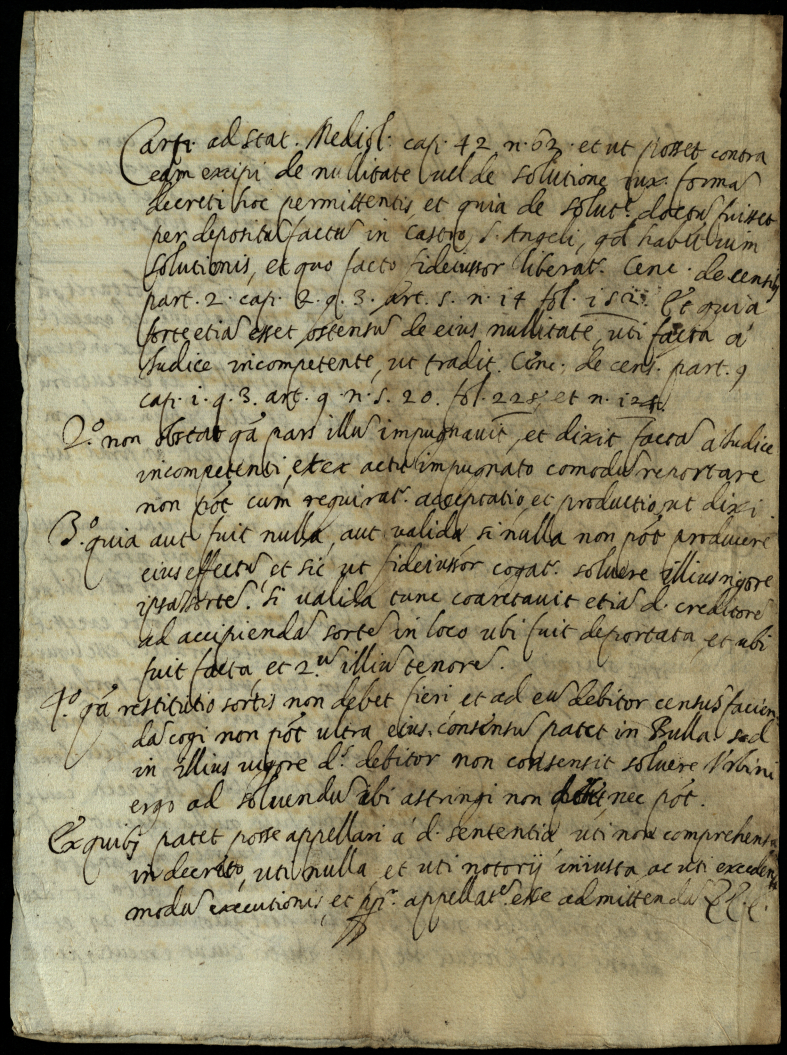 Carp. ad stat. Mediol. cap. 42 n. 62. et ut posset contra
eam excipi de nullitate vel de solutione iux. forma
decreti hoc permittentis, et quia de solut.e doctu fuisset
per depositu factu in Castro S. Angeli, qd habet vim
solutionis, et quo facto fideiussor liberat.r Cenc. de censib
part. 2. cap. 2. q. 3. art. 5. n. 14 fol. Et quia
forte etia esset ostensu de eius nullitate, uti facta á
Iudice incompetente, ut tradit. Cenc. de cens. part. 9
cap. i. q. 3. art. 9. n. 5. 20. fol. 228, et n.
2.o non obstat qa pars illu impugnavit, et dixit facta á Iudice
incompetenti, et ex actu impugnato comodu reportare
non pót, cum requirat.r acceptatio, et productio, ut dixi.
3.o quia aut fuit nulla, aut valida, si nulla non pót producere
eius effectu, et sic ut fideiussor cogat.r solvere illius rigore
ipsa sorte. Si valida tunc coarctavit etia d. creditore
ad accipienda sorte in loco ubi fuit deportata, et ubi
fuit facta, et 2.m illiu tenore.
4.o qa restitutio sortis non debet fieri et ad eu debitor census facien
da cogi non pót ultra eius consensu patet in Bulla. sed
in illius vigore d.s debitor non consensit solvere Urbini
ergo ad solvendu ibi astringi non nec pót.
Ex quib patet posse appellari á d. sententia uti non comprehensa
in decreto, uti nulla, et uti notorij iniusta, ac uti excedente
modu executionis, et appellat.e esse admittenda